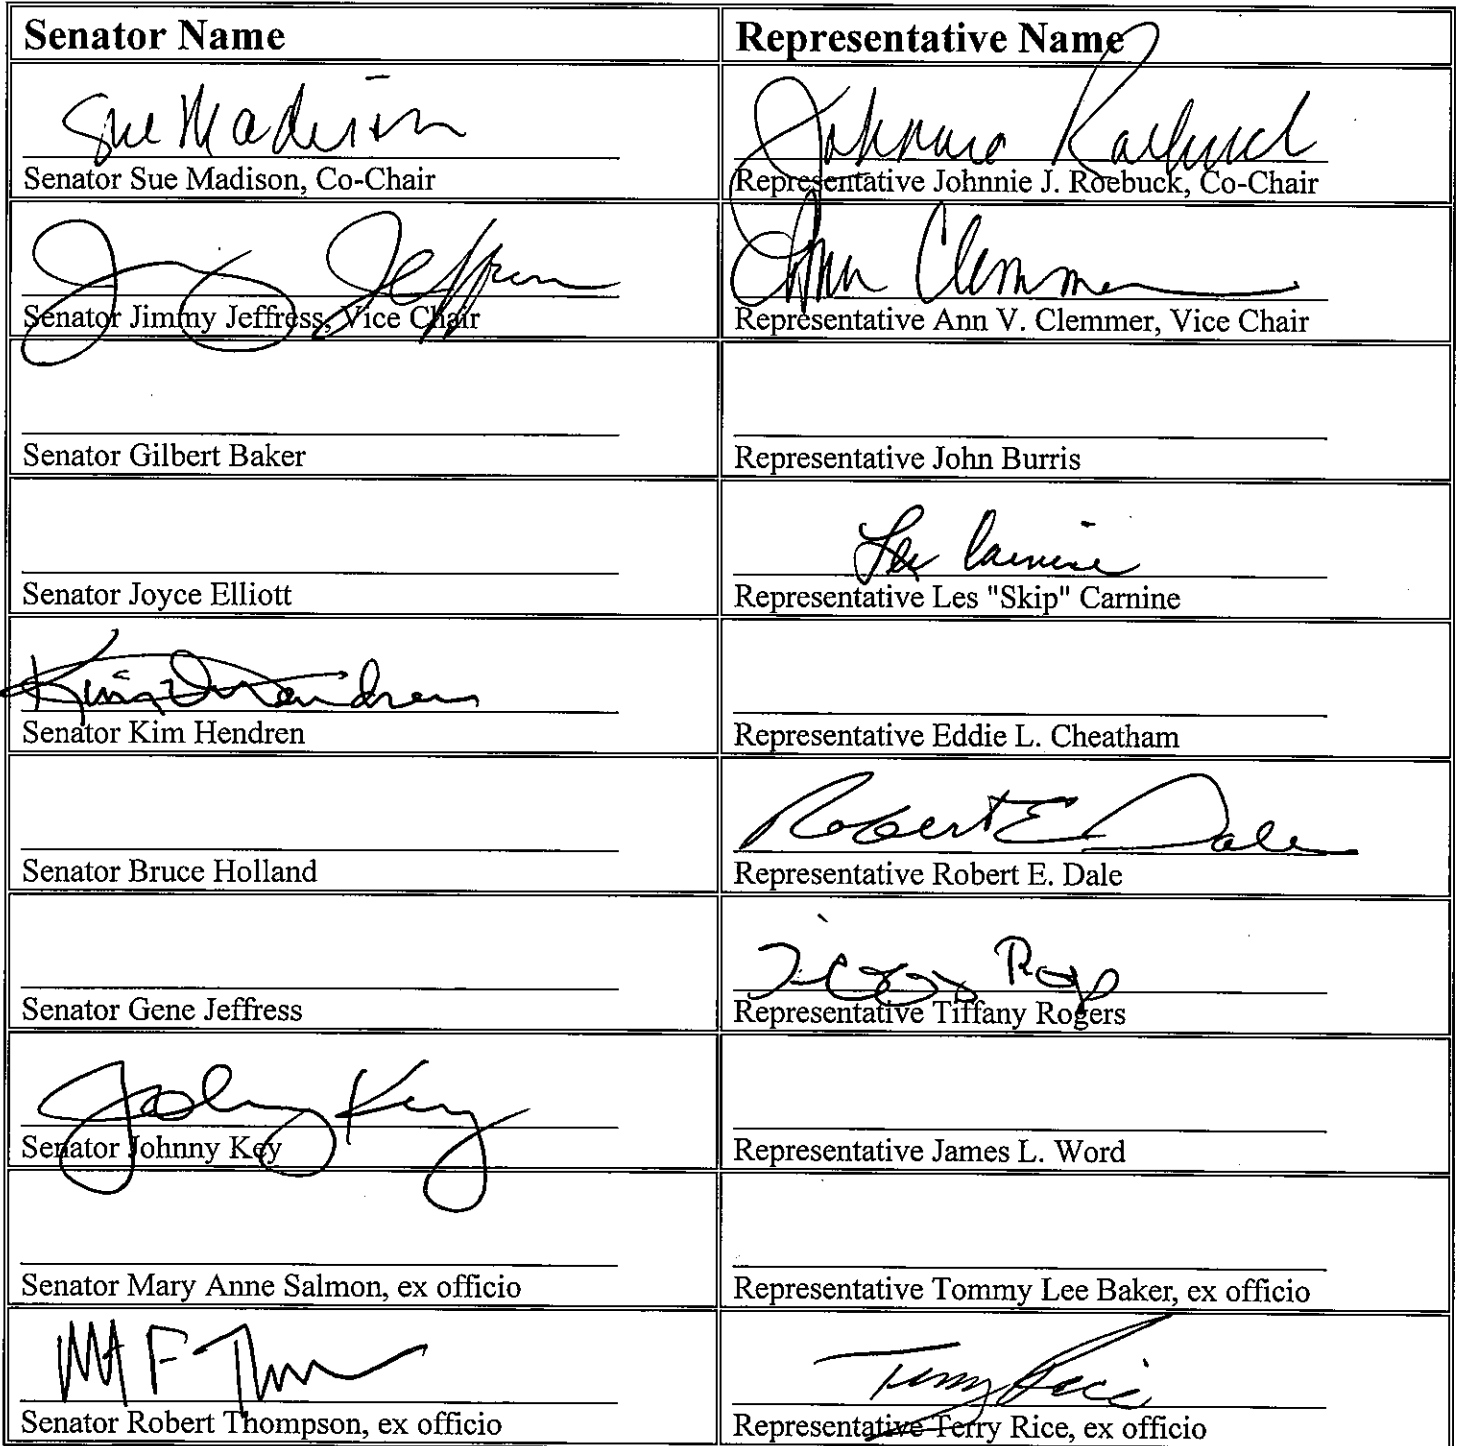 Senator Name
Representative Name
Sue Madison
Johnnie Roebuck
Senator Sue Madison, Co-Chair
Representative Johnnie J. Roebuck, Co-Chair
Jimmy Jeffress
Ann Clemmer
Senator Jimmy Jeffress, Vice Chair
Representative Ann V. Clemmer, Vice Chair
Senator Gilbert Baker
Representative John Burris
Les Carnine
Senator Joyce Elliott
Representative Les "Skip" Carnine
Kim Hendren
Senator Kim Hendren
Representative Eddie L. Cheatham
Robert E. Dale
Senator Bruce Holland
Representative Robert E. Dale
Senator Gene Jeffress
Representative Tiffany Rogers
Johnny Key
Senator Johnny Key
Representative James L. Word
Senator Mary Anne Salmon, ex officio
Representative Tommy Lee Baker, ex officio
Terry Rice
Senator Robert Thompson, ex officio
Representative Terry Rice, ex officio